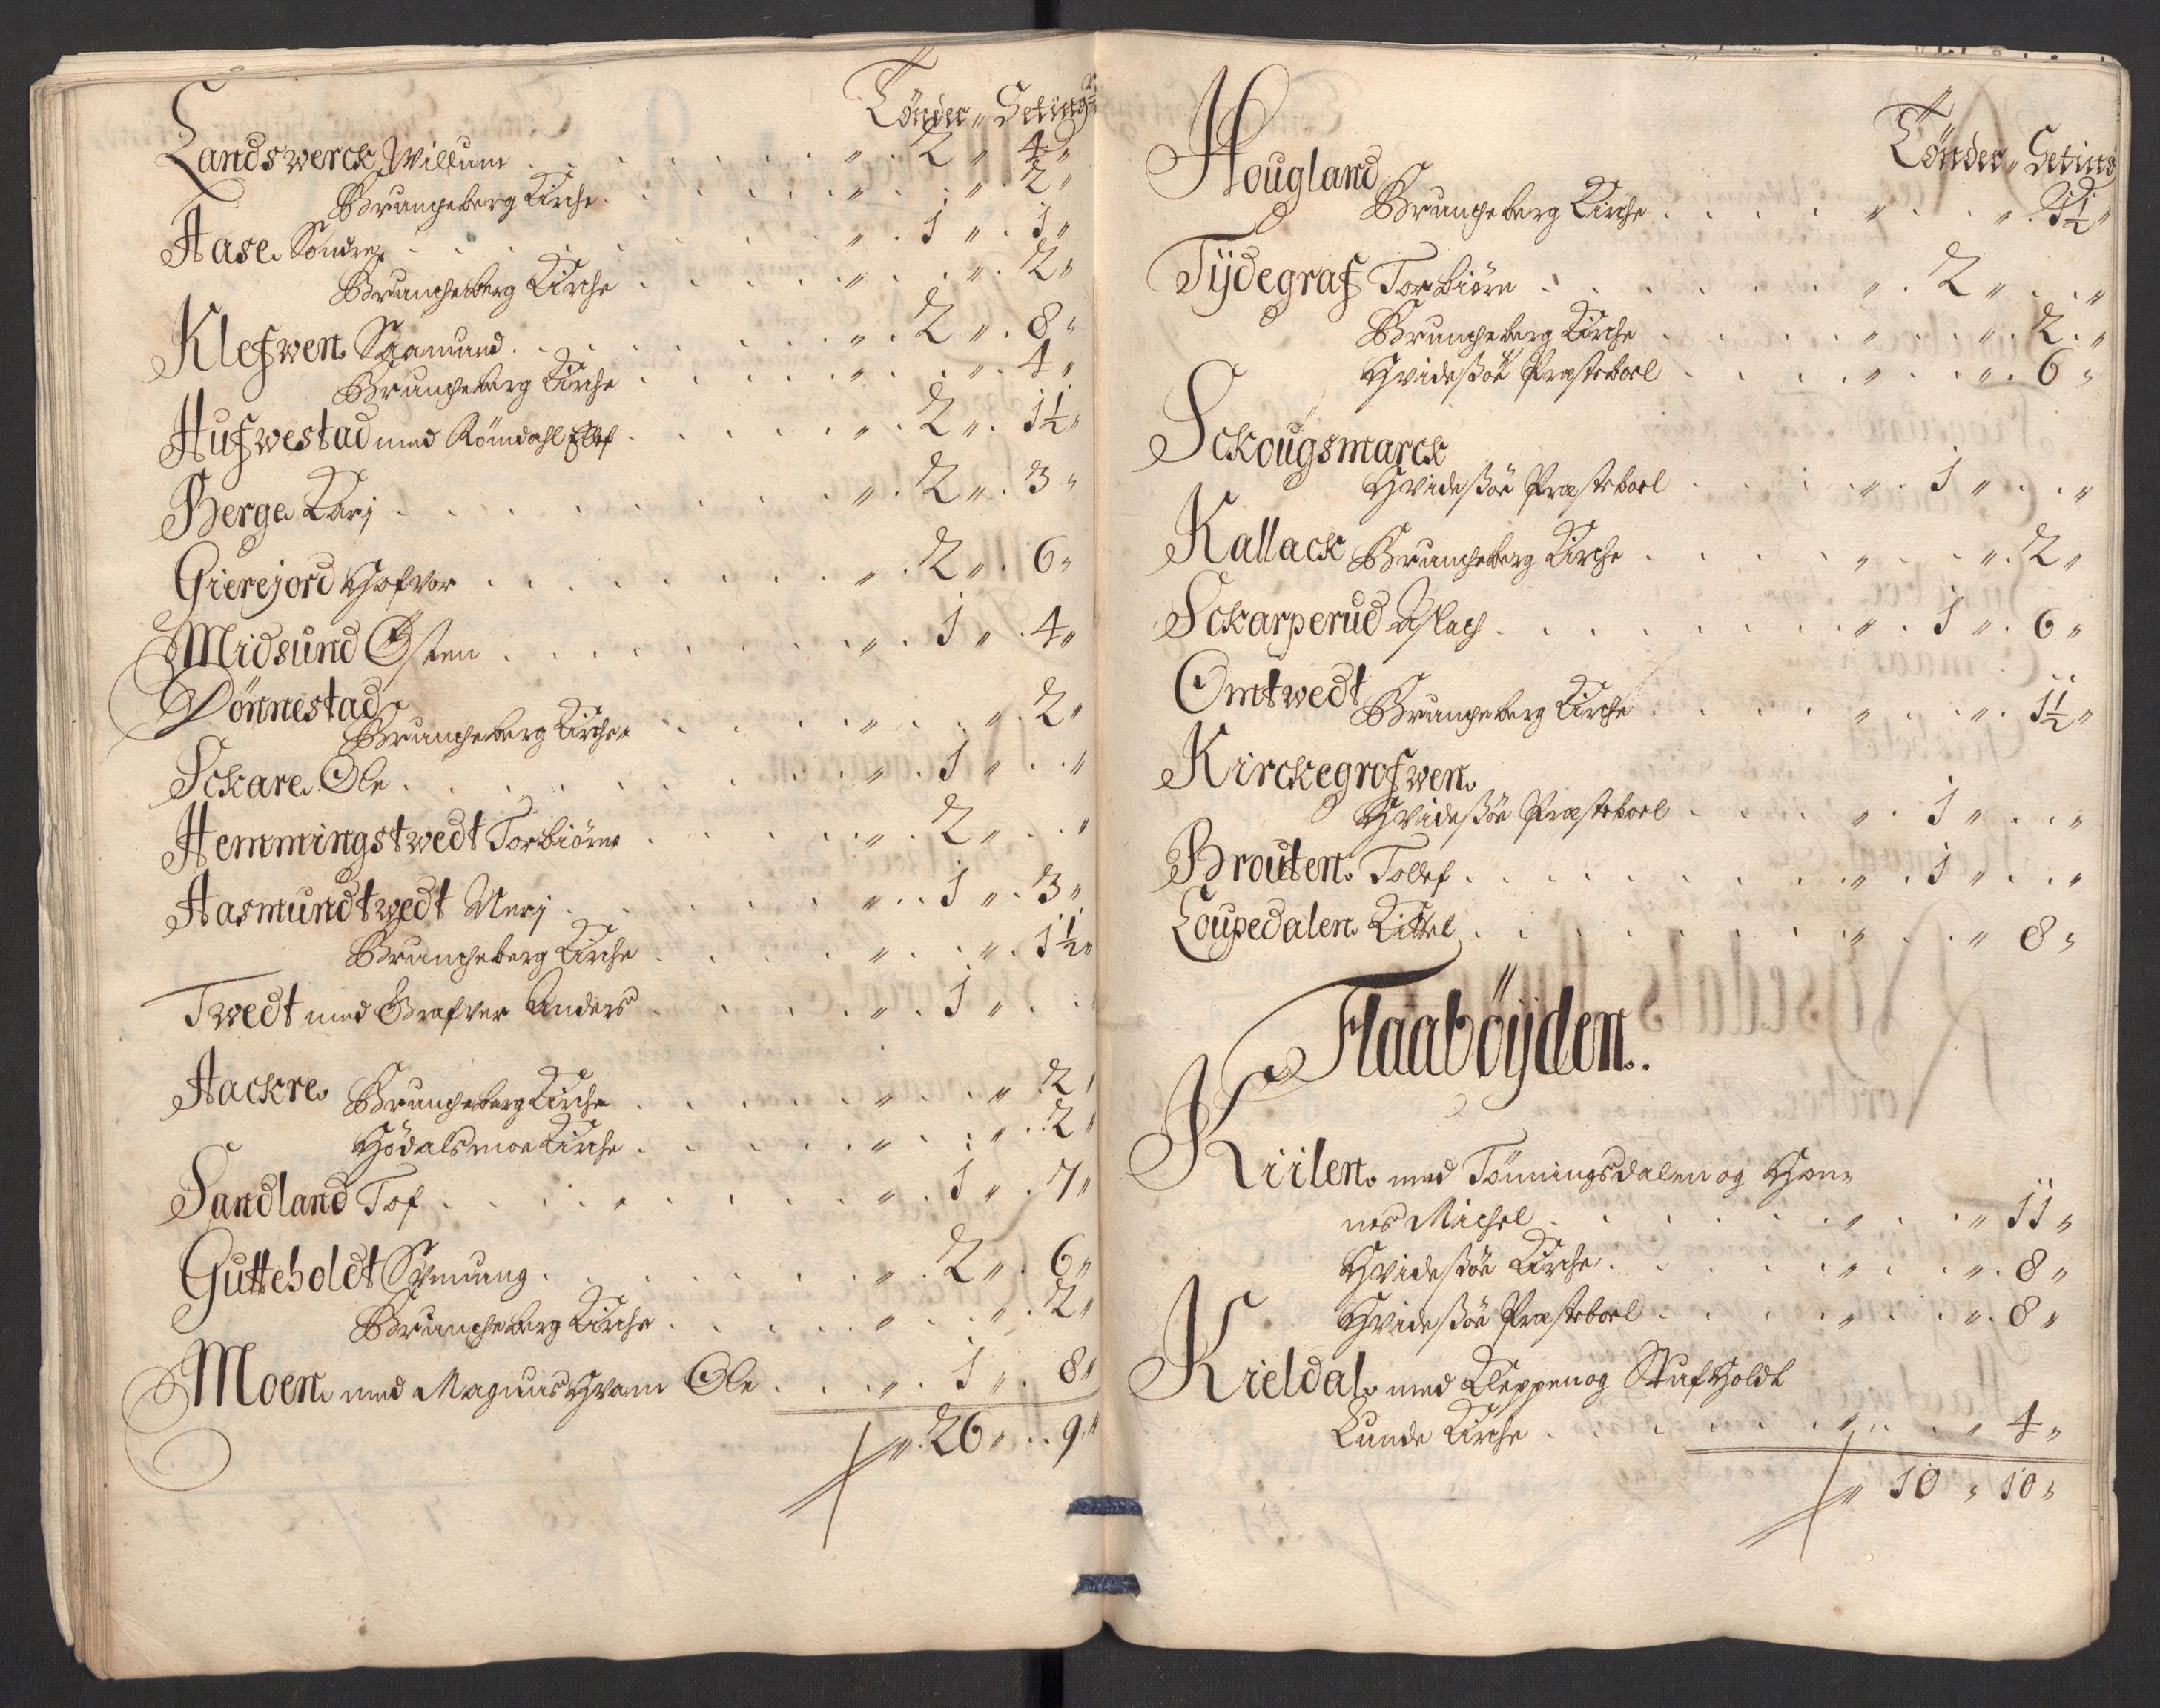 Tönder „ Setting
Landswerck Willum . . . . . . . „ . 2 „ 4 „
Brunckeberg Kirche . . . . . „ . . „ . 2 „
Aase Sondre . . . . . . . „ . 1 „ . 1 „
Brunckeberg Kirche . . . . „ . . „ . 2 „
Klefwen Aamund . . . . . . „ . 2 „ . 8 „
Brunckeberg Kirche . . . . „ . . „ . 4 „
Hufwestad med Römdahl Ellef . . . . . „ . 2 „ . 1½ „
Berge Kari . . . . . . . . „ . 2 „ . 3 „
Gierejord Hofvor . . . . . . . „ . 2 „ . 6 „
Midsund Östen . . . . . . . „ . 1 „ . 4 „
Dönnestad
Brunckeberg Kirche . . . . „ . . „ . 2 „
Sckare Ole . . . . . . . „ . 1 „ . . „
Hemmingstwedt Torbiörn . . . . . „ . 2 „ . . „
Aasmundtwedt Neri . . . . . . „ . . 1 „ . 3 „
Brunckeberg Kirche . . . . „ . . „ . 1½ „
Twedt med Grafver Anders . . . . „ . 1 „ . .
Aackre Brunckeberg Kirche . . . . . „ . . „ . 2 „
Hödalsmoe Kirche . . . . . „ . . „ . 2 „
Sandland Tof . . . . . . . . „ . 1 „ . 7 „
Gutteholdt Amung . . . . . . . „ . 2 „ . 6 „
Brunckeberg Kirche . . . . . „ . . „ . 2 „
Moen med Magnus Hvam Ole . . . „ . 1 „ . 8 „
„ . 26 „ . . 9 „
Tönder „ Setting
Hougland
Brunckeberg Kirche . . . . „ . . „ . 1½ „
Tijdegraf Torbiörn . . . . . . „ . 2 „ . . „
Brunckeberg Kirche . . . . „ . . „ . 2 . „
Hvidesöe Præsteboel . . . . „ . . „ . 6 „
Sckougsmarck
Hvidesöe Præsteboel . . . . „ . 1 „ . . „
Kallack Brunckeberg Kirche . . . . . „ . . „ . 2 „
Sckarperud Aslach . . . . . . . „ . 1 „ . 6 „
Omtwedt
Brunckeberg Kirche . . . . „ . . „ . 1½ „
Kirckegrafwen
Hvidesöe Præsteboel . . . . „ . 1 „ . . „
Brouten Tollef . . . . . . . „ . 1 „ . . „
Loupedalen Kittel . . . . . . . „ . . „ 8 „
Flaaböijden.
Kiilen med Tönningsdalen og Hom-
nes Michel . . . . . . „ . . „ 11 „
Hvidesöe Kirche . . . . . „ . . „ . 8 „
Hvidesöe Præsteboel . . . . „ . . „ . 8 „
Kieldal med Kleppen og Stufholdt
Lunde Kirche . . . . . „ . . . „ 4 „
„ 10 „ 10 „